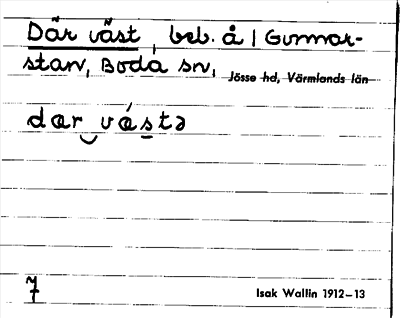 Där väst, beb. å | Gunnar-
stan, Boda sn, Jösse hd, Värmlands län
dar vástə
7
Isak Wallin 1912–13